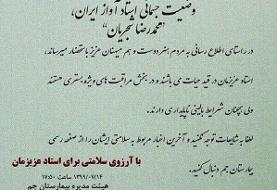 وضعیت جسمانی استاد آواز ایران،
"محمدرضا شجریان"
در راستای اطلاع رسانی به مردم هنردوست و هم میهنان عزیز باستحضار میرساند،
استاد عزیزمان در قید حیات می باشند و در بخش مراقبت های ویژه بستری هستند
ولی همچنان شرایط بالینی ناپایداری دارند.
لطفا به شایعات توجه نکنید و آخرین اخبار مربوط به سلامتی ایشان را از صفحه رسمی
بیمارستان جم دنبال کنید.
با آرزوی سلامتی برای استاد عزیزمان
۱۳۹۹/۰۷/۱۴ ساعت ۱۷:۵۰
هیئت مدیره بیمارستان جم